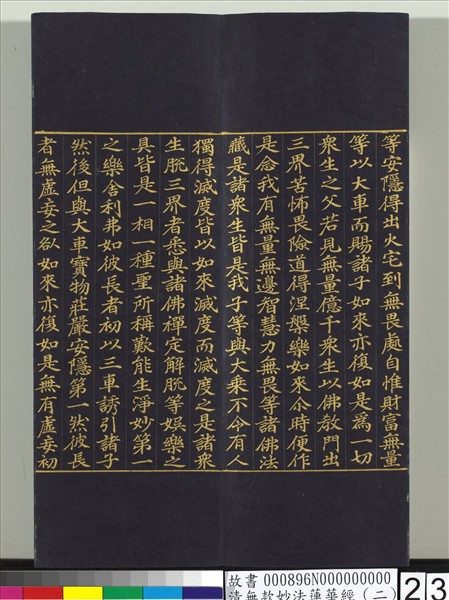 等安隱得出火宅到無畏處自惟財富無量
等以大車而賜諸子如來亦復如是為一切
衆生之父若見無量億千衆生以佛教門出
三界苦怖畏險道得涅槃樂如來尒時便作
是念我有無量無邊智慧力無畏等諸佛法
藏是諸衆生皆是我子等與大乘不令有人
獨得滅度皆以如來滅度而滅度之是諸衆
生脫三界者悉與諸佛禪定解脫等娛樂之
具皆是一相一種聖所稱歎能生淨妙第一
之樂舍利弗如彼長者初以三車誘引諸子
然後但與大車寶物莊嚴安隱第一然彼長
者無虛妄之咎如來亦復如是無有虛妄初
故書 000896N000000000
清無款妙法蓮華經（二）
23